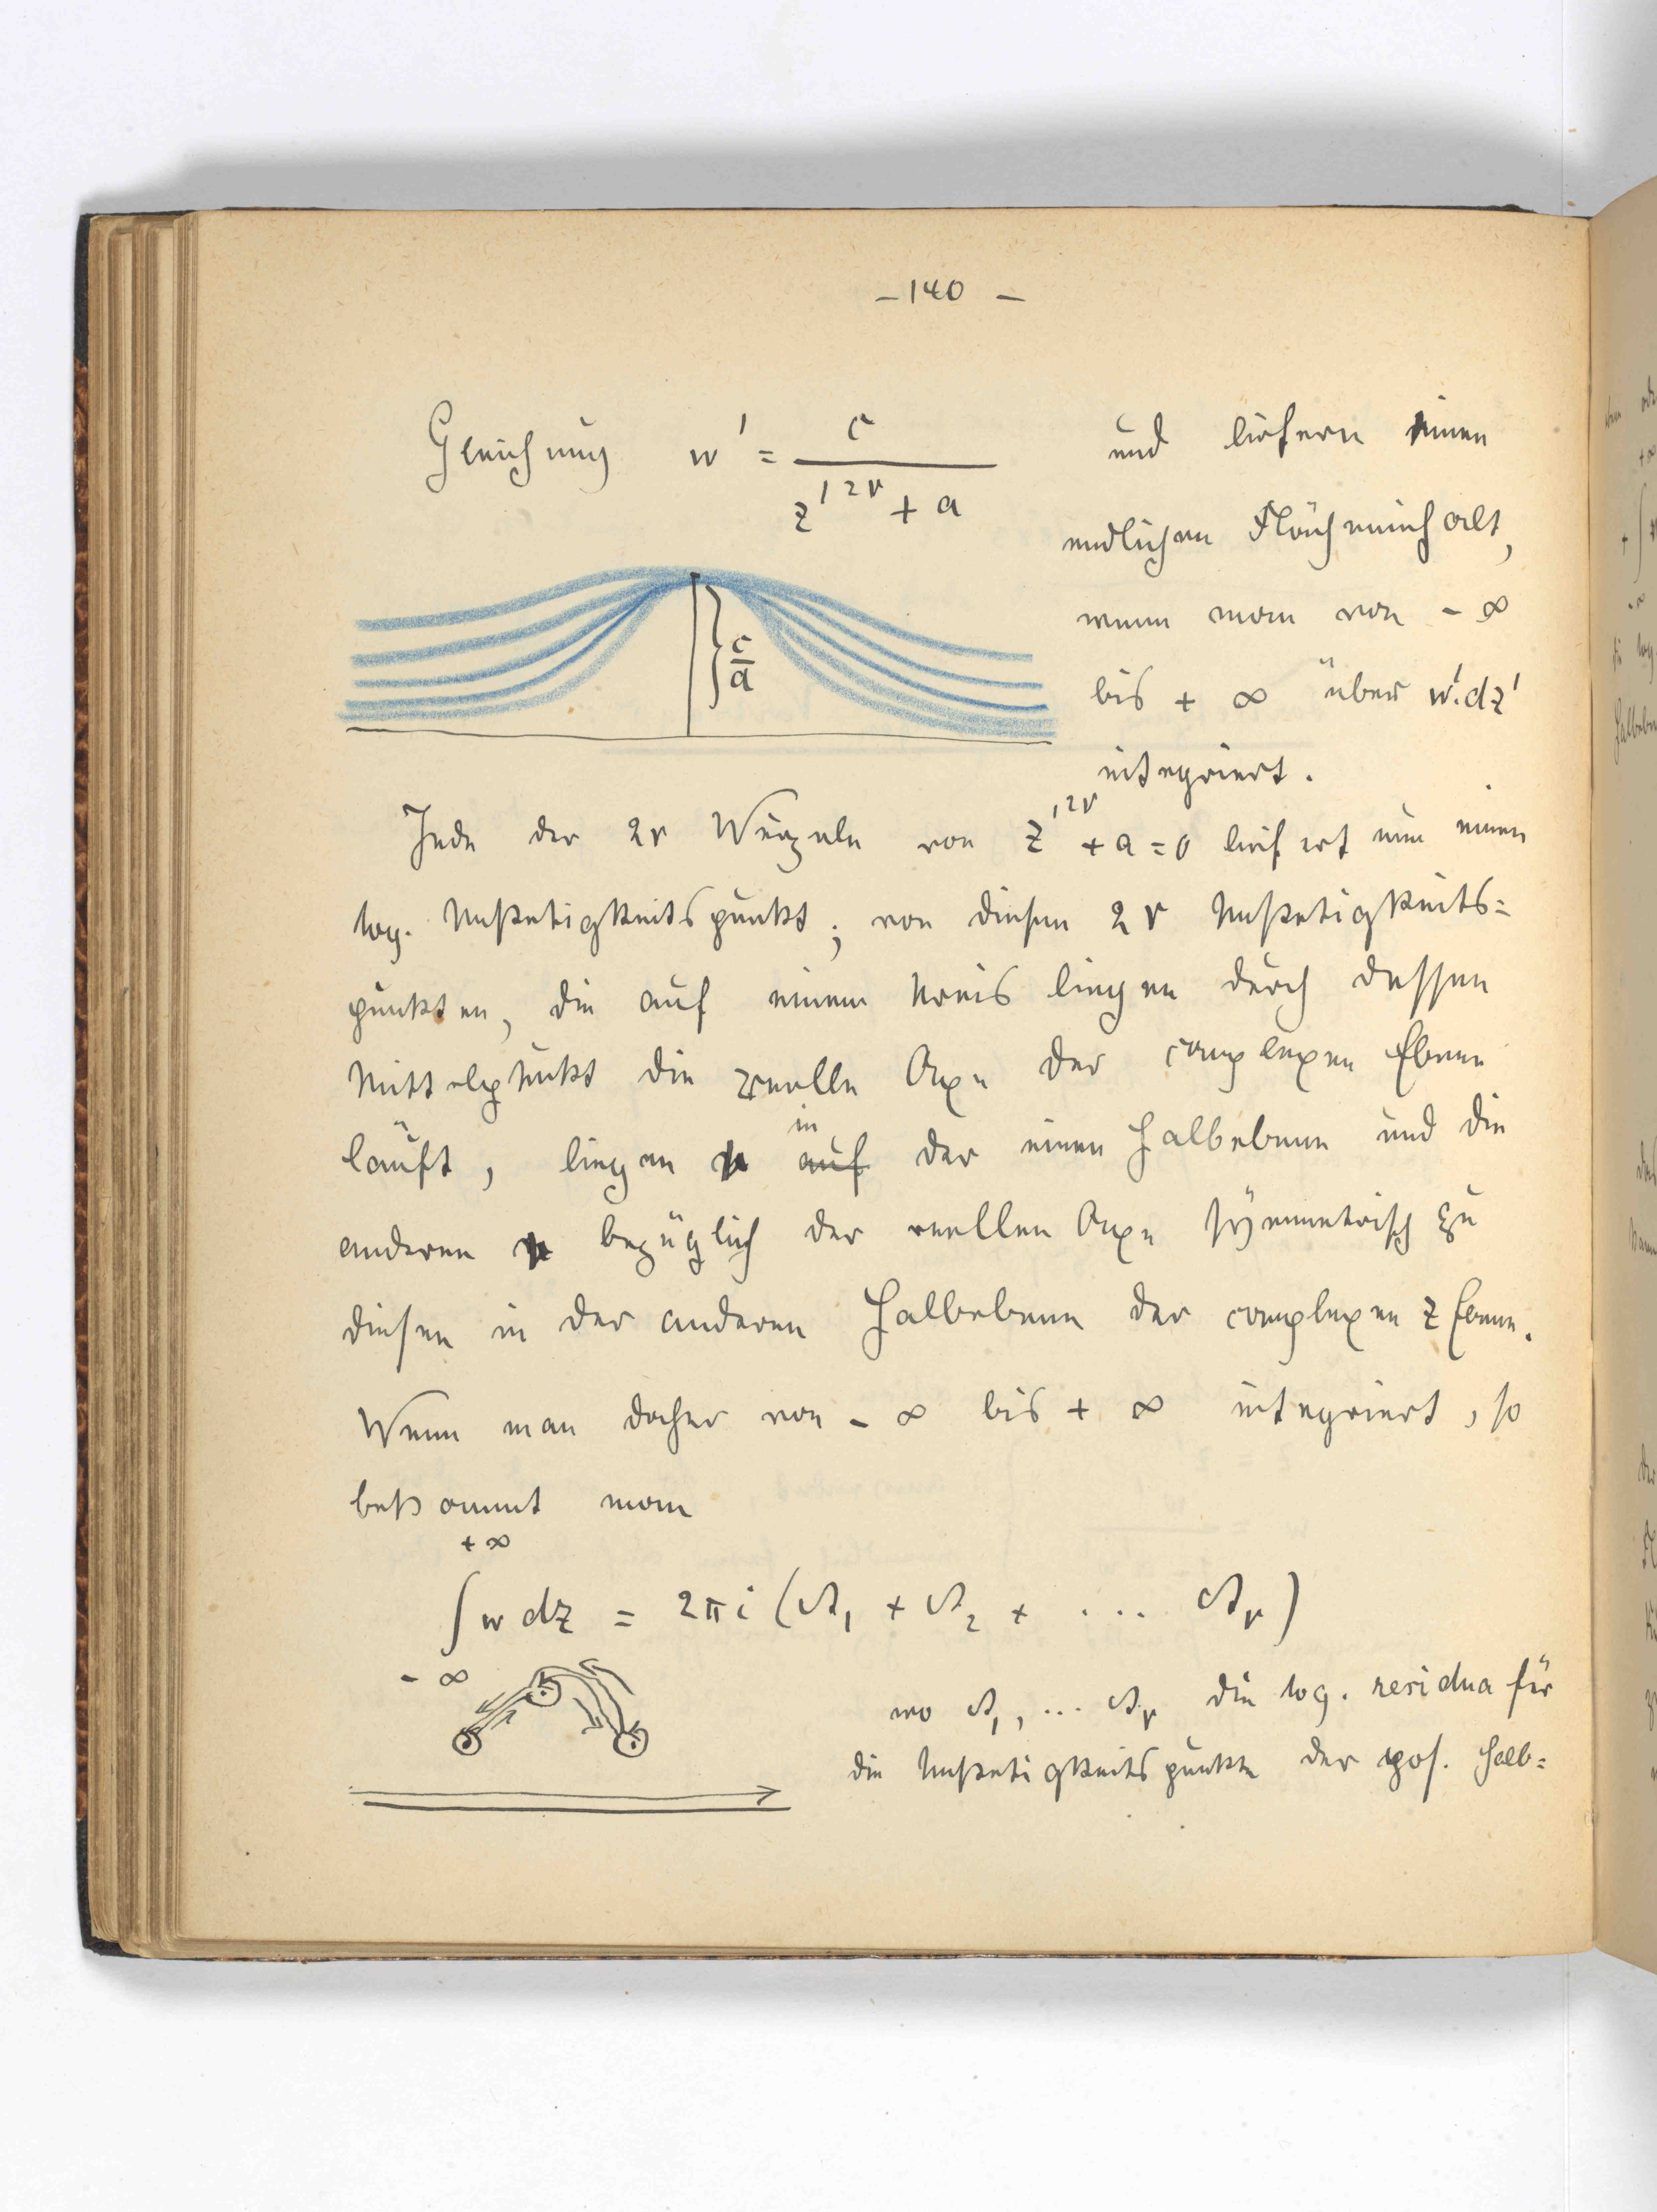 – 140 –
Gleichung w' = c / (z'^2r + a) und liefern einen
endlichen Flächeninhalt,
wenn man von – ∞
bis + ∞ über w'.dz'
integriert.
c/a
Jede der 2r Wurzeln von z'^2r + a = 0 liefert nun einen
log. Unstetigkeitspunkt; von diesen 2r Unstetigkeits=
punkten, die auf einem Kreis liegen durch dessen
Mittelpunkt die reelle Axe der complexen Ebene
läuft, liegen r in auf der einen Halbebene und die
anderen r bezüglich der reellen Axe symmetrisch zu
diesen in der anderen Halbebene der complexen z Ebene.
Wenn man daher von – ∞ bis + ∞ integriert, so
bekommt man
+ ∞
∫ w dz = 2πi (A₁ + A₂ + .... Aᵣ)
– ∞
wo A₁, ... Aᵣ die log. residua für
die Unstetigkeitspunkte der pos. Halb=